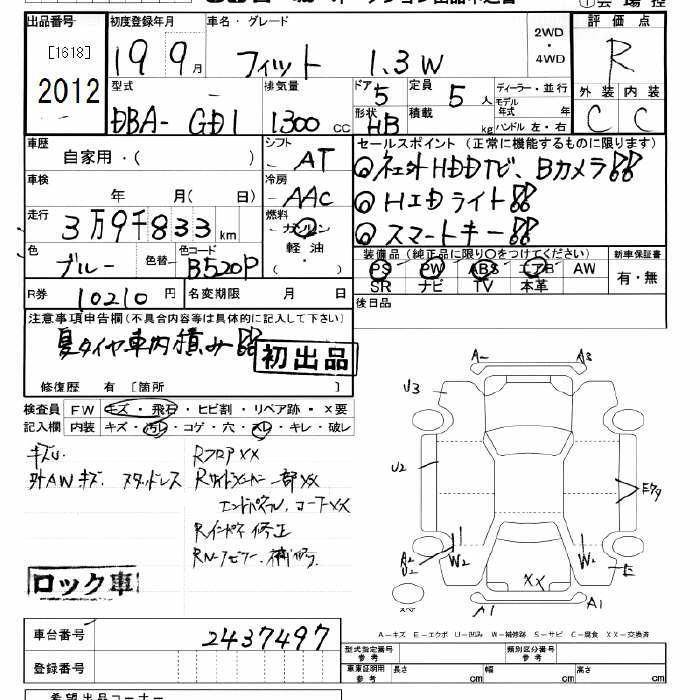 出品番号 初度登録年月 車名・グレード 2WD・4WD 評価点
[1618] 2012 19 9月 フィット 1.3W R
型式 排気量 ドア 5 定員 5人 ディーラー・並行 外装 内装
DBA- GD1 1300cc 形状 HB 積載 kg モデル年式 年 ハンドル 左・右 C C
車歴 自家用・( ) シフト AT
セールスポイント (正常に機能するものに限ります)
◎社外HDDナビ、Bカメラ
車検 年 月(日) 冷房 AAC
◎HIDライト
走行 3万9千833km 燃料 ガソリン 軽油・( )
◎スマートキー
色 ブルー 色替 色コード B520P
装備品(純正品に限り○をつけてください) 新車保証書
PS PW ABS エアB AW 有・無
SR ナビ TV 本革
R券 10210円 名変期限 月 日
後日品
注意事項申告欄(不具合内容等は具体的に記入して下さい)
夏タイヤ車内積み
初出品
修復歴 有 [箇所 ]
検査員 FW キズ・飛石・ヒビ割・リペア跡・×要
記入欄 内装 キズ・汚レ・コゲ・穴・スレ・キレ・破レ
RフロアXX
外AWキズ スタッドレス
Rサイドメンバー一部XX
エンドパネル、コーナーXX
Rインナー修正
ロック車
A3
U3
U2
A2 U2 W2 W2 E
XX
A1 A1
A－キズ E－エクボ U－凹み W－補修跡 S－サビ C－腐食 XX－交換済
車台番号 2437497
型式指定番号 参考 類別区分番号 参考
登録番号
車庫証明用 参考 長さ cm 幅 cm 高さ cm
希望出品コーナー